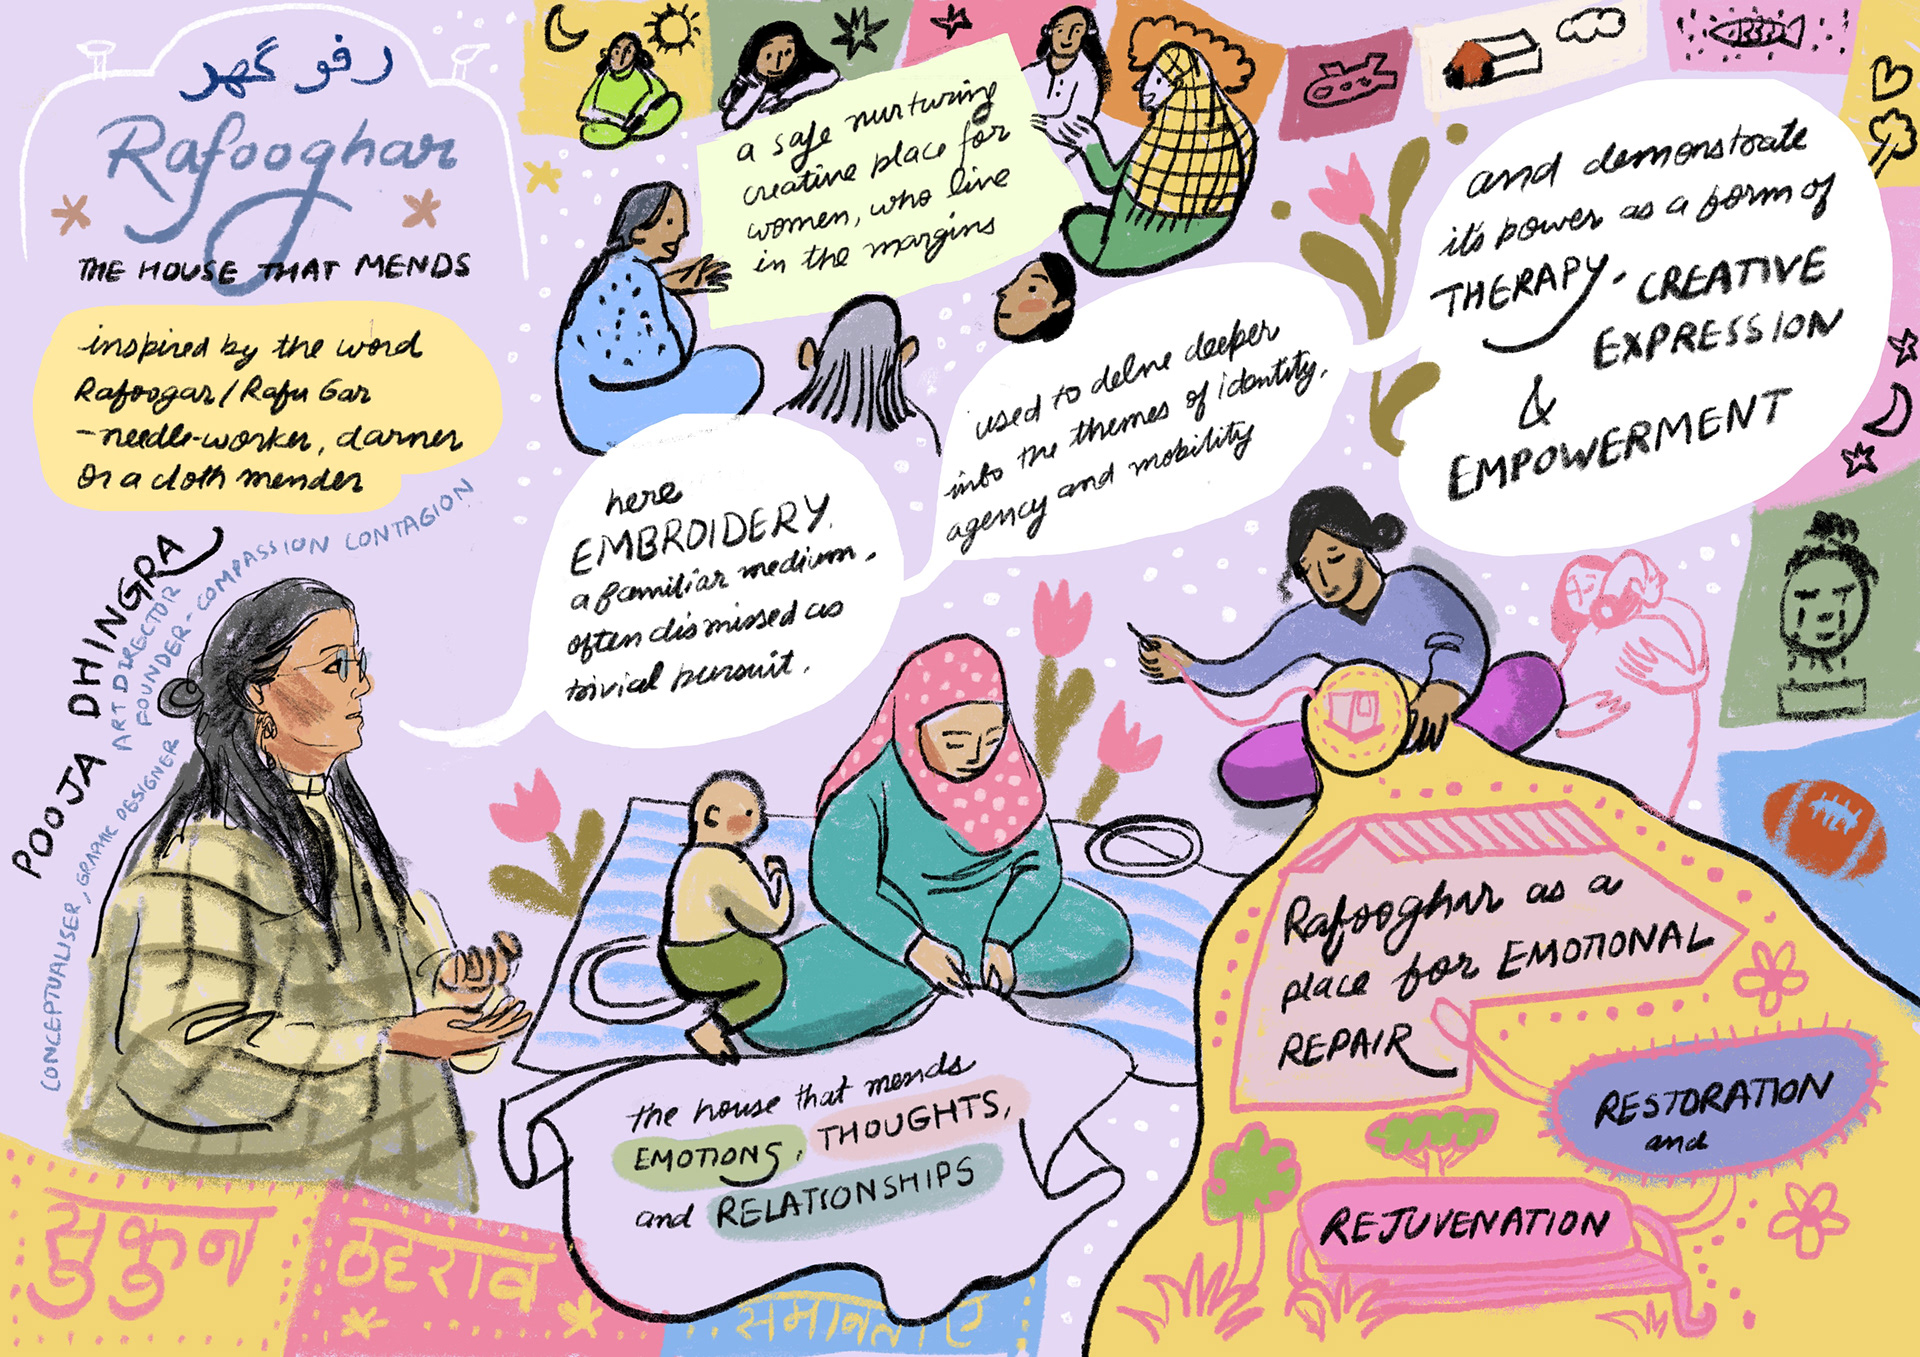 رفو گھر
Rafooghar
THE HOUSE THAT MENDS
inspired by the word
Rafoogar/Rafu Gar
-needle-worker, darner
or a cloth mender
POOJA DHINGRA
ART DIRECTOR
FOUNDER-COMPASSION CONTAGION
CONCEPTUALISER, GRAPHIC DESIGNER
a safe nurturing
creative place for
women, who live
in the margins
here
EMBROIDERY.
a familiar medium.
often dismissed as
trivial pursuit.
used to delve deeper
into the themes of identity.
agency and mobility
and demonstrate
it's power as a form of
THERAPY. CREATIVE
EXPRESSION
&
EMPOWERMENT
the house that mends
EMOTIONS, THOUGHTS,
and RELATIONSHIPS
Rafooghar as a
place for EMOTIONAL
REPAIR
RESTORATION
and
REJUVENATION
सुकुन
ठहराव
समानताए